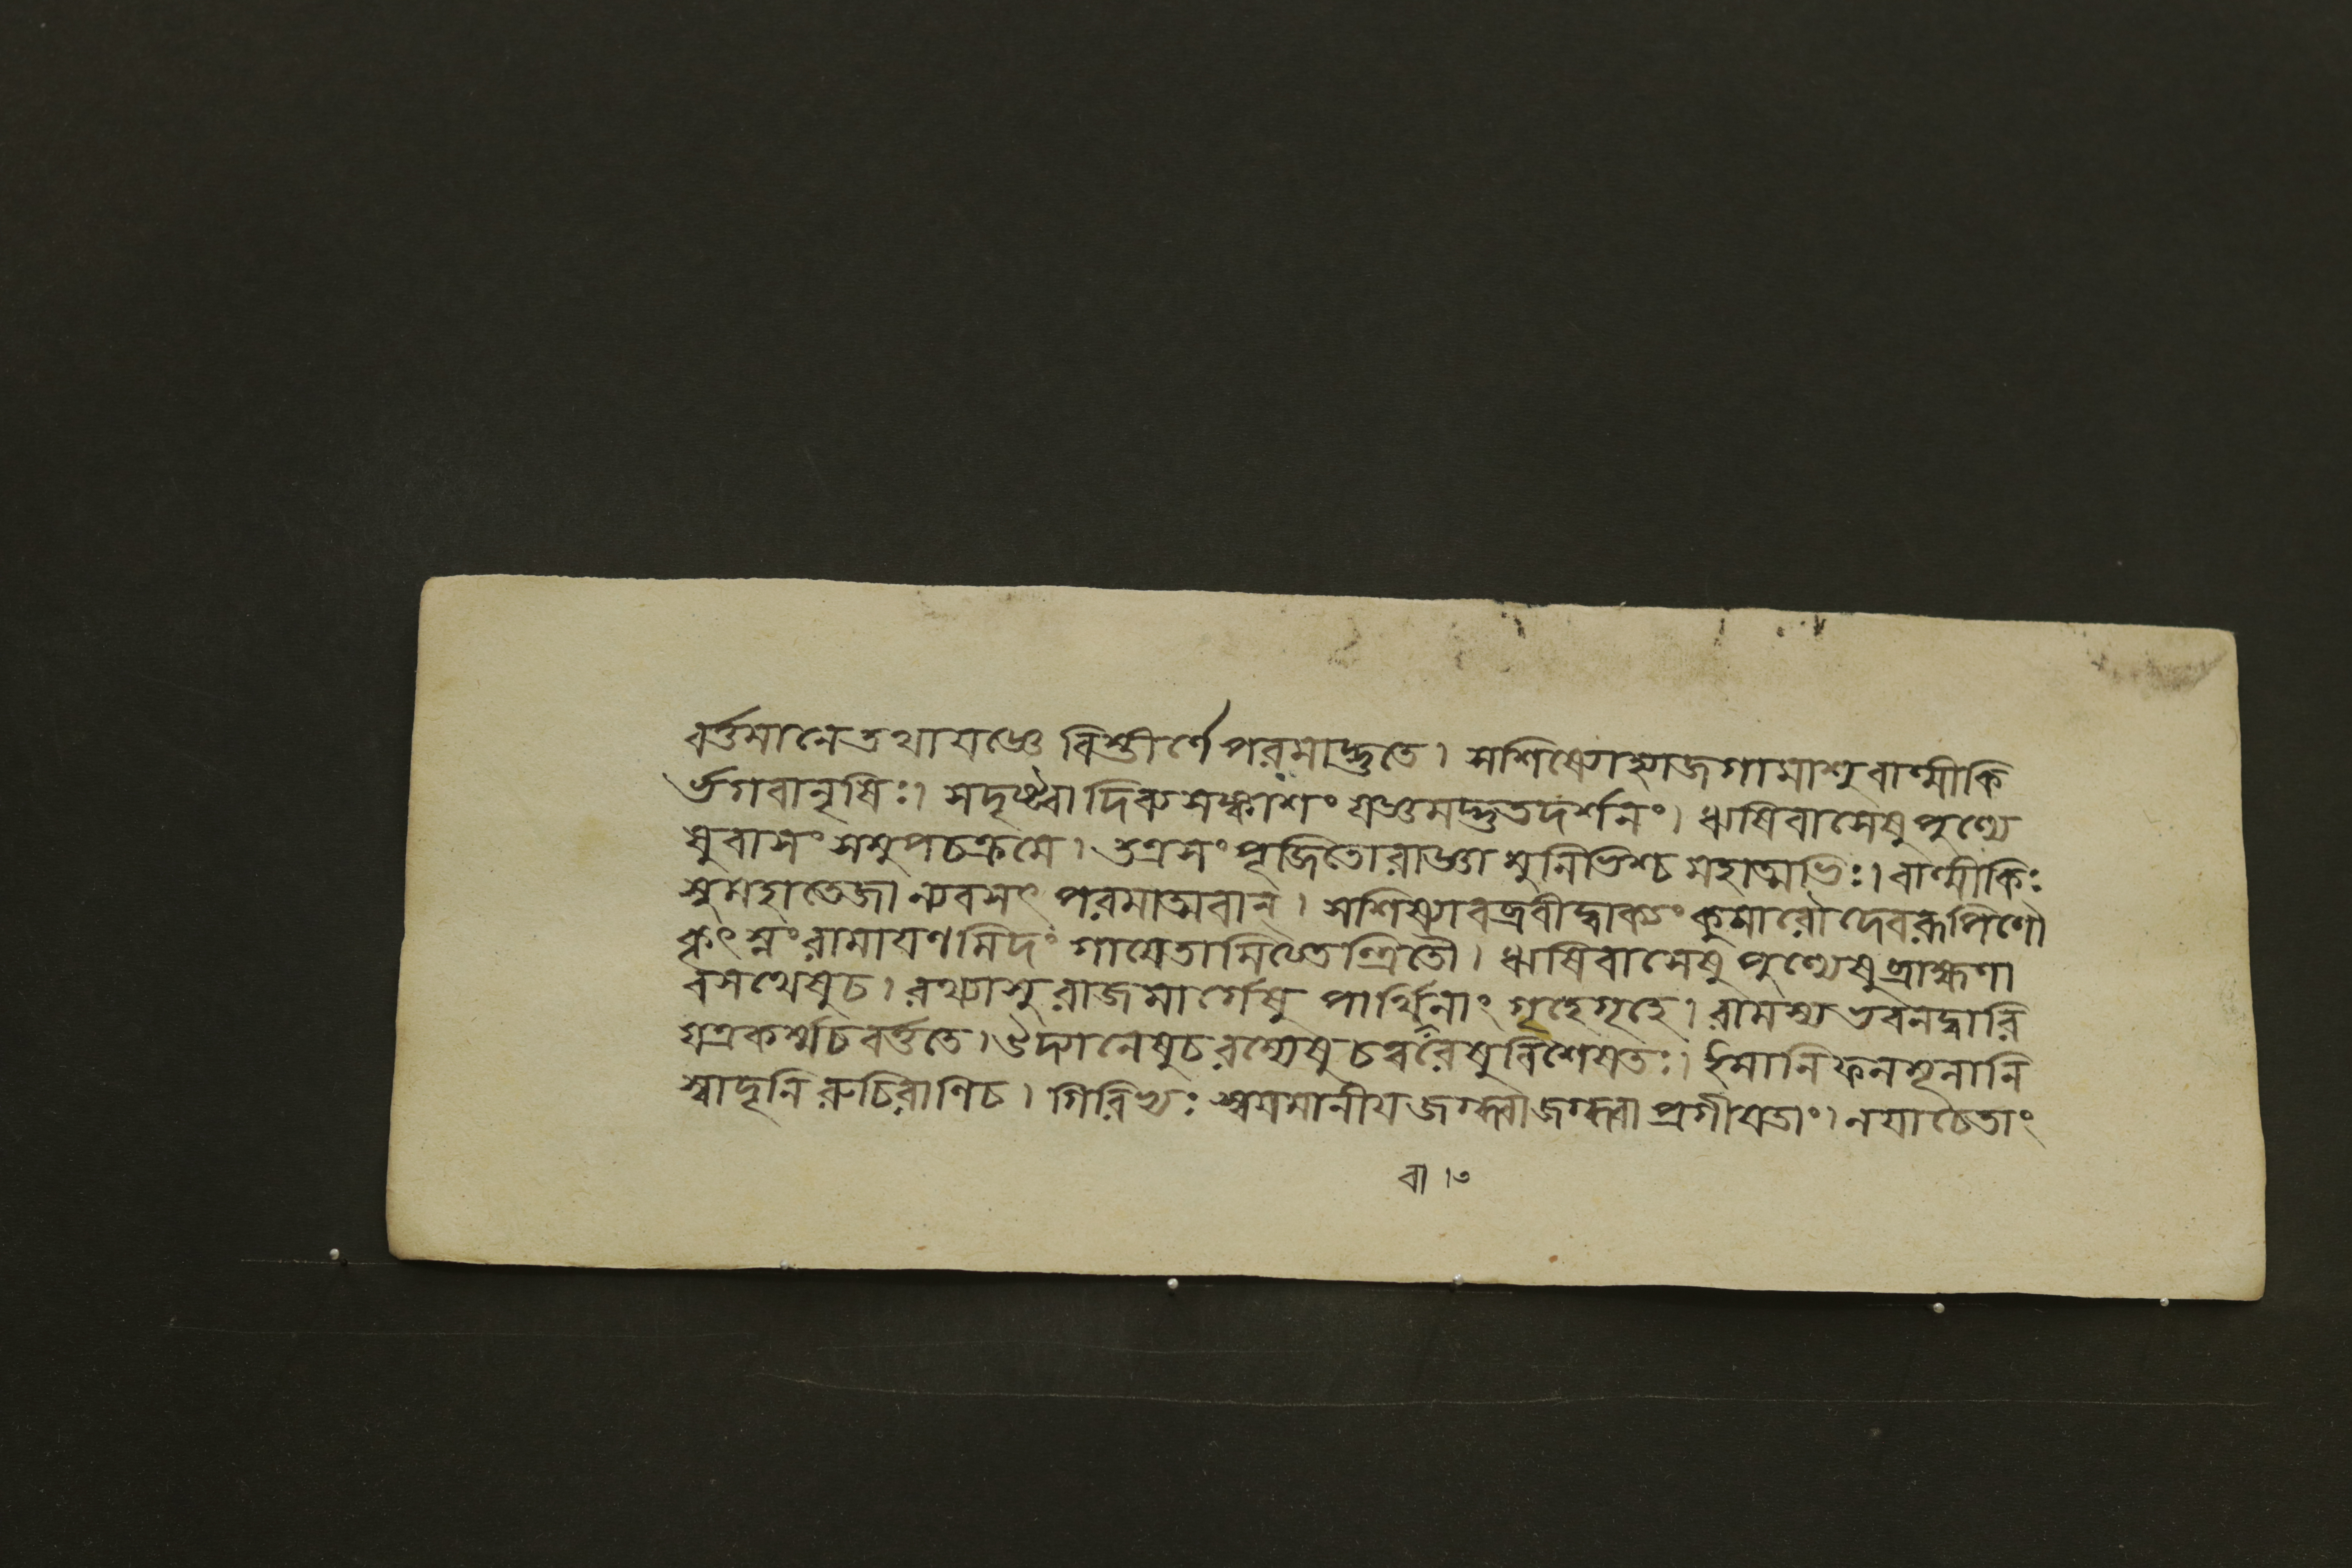 বর্ত্তমানে তথা যজ্ঞে বিস্তীর্ণে পরমাদ্ভুতে। সশিষ্যোহ্যাজগামাশু বাল্মীকি
র্ভগবানৃষিঃ। সদৃষ্ট্বা দিব্যসঙ্কাশং যজ্ঞমদ্ভুতদর্শনং। ঋষিবাসেষু পুণ্যে
ষু বাসং সমুপচক্রমে। তত্র সংপূজিতো রাজ্ঞা মুনিভিশ্চ মহাত্মভিঃ। বাল্মীকিঃ
সুমহাতেজা ন্যবসৎ পরমাত্মবান্। সশিষ্যাবব্রবীদ্বাক্যং কুমারৌ দেবরূপিণৌ
কৃৎস্নং রামায়ণমিদং গায়েতামিত্যতন্দ্রিতৌ। ঋষিবাসেষু পুণ্যেষু ব্রাহ্মণা
বসথেষু চ। রথ্যাসু রাজমার্গেষু পার্থিবানাং গৃহে গৃহে। রামস্য ভবনদ্বারি
যত্র কর্ম্ম চ বর্ত্ততে। উদ্যানেষু চ রম্যেষু চত্বরেষু বিশেষতঃ। ইমানি ফলমূলানি
স্বাদূনি রুচিরাণি চ। গিরিভ্যঃ স্বয়মানীয় জগ্ধ্বা জগ্ধ্বা প্রগীয়তাং। নযাচেতাং
বা ।৩